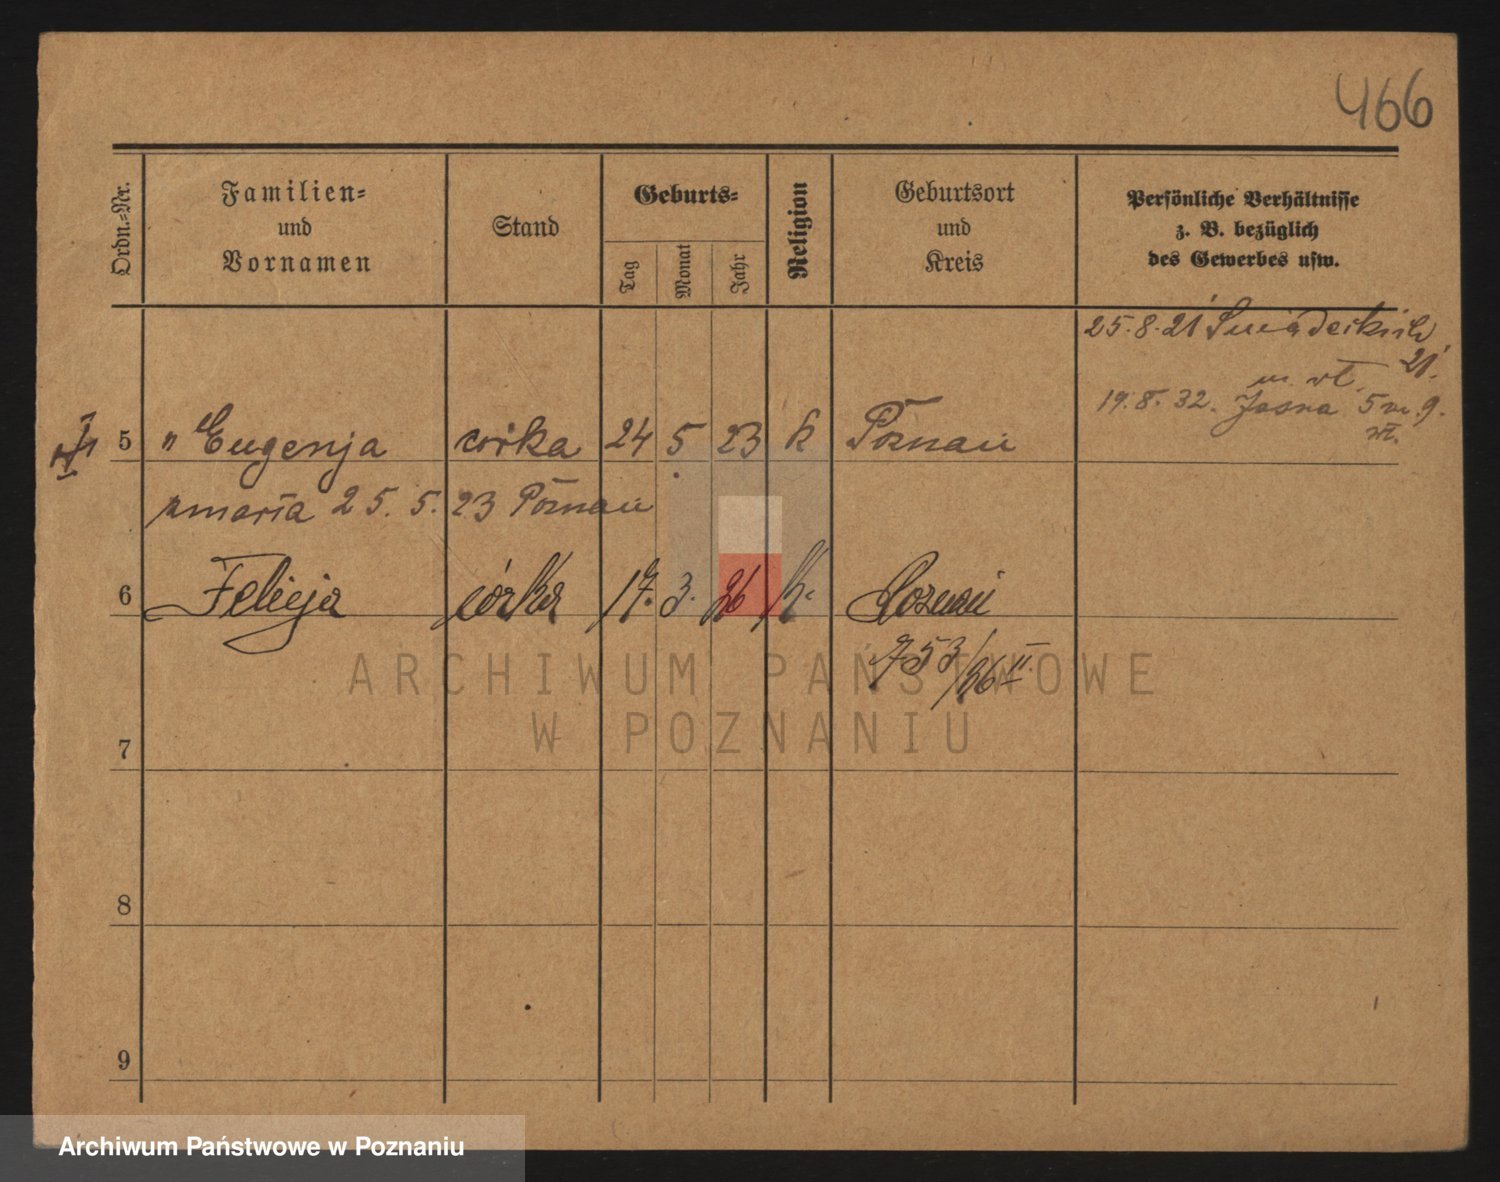 466
Ordn.=Nr.
Familien=
und
Vornamen
Stand
Geburts=
Tag
Monat
Jahr
Religion
Geburtsort
und
Kreis
Persönliche Verhältnisse
z. B. bezüglich
des Gewerbes usw.
25.8.21 Śniadeckich
21.
m. rt.
19.8.32. Jasna 5 m. 9.
rt.
5 " Eugenja córka 24 5 23 k Poznań
zmarła 25. 5. 23 Poznań
6 Felicja córka 17. 3. 26 k. Poznań
753/26 II
ARCHIWUM PAŃSTWOWE
W POZNANIU
7
8
9
Archiwum Państwowe w Poznaniu